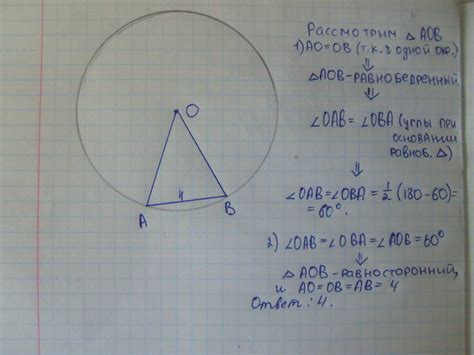 Рассмотрим △ AOB
1) AO=OB (т.к. r одной окр.)
⇓
△AOB-равнобедренный.
⇓
∠OAB = ∠OBA (углы при
основании
равноб. △)
⇓
∠OAB=∠OBA = 1/2 (180-60)=
= 60°.
2) ∠OAB=∠OBA=∠AOB=60°
⇓
△ AOB-равносторонний,
и AO=OB=AB= 4
Ответ: 4.
O
4
A
B